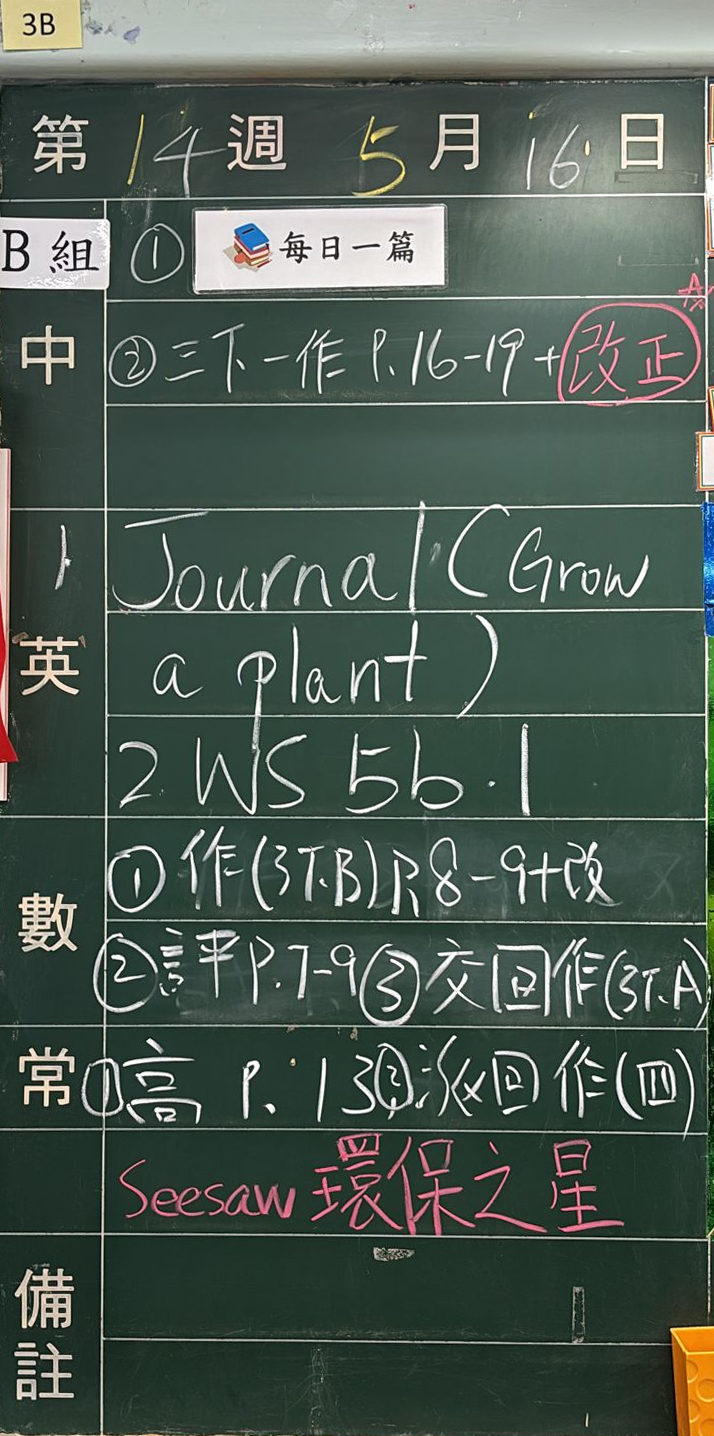 3B
第 14 週 5 月 16 日
B 組 ① 每日一篇
中 ② 三下一作 P.16-19 + 改正
1 Journal (Grow
英 a plant)
2 WS 5b.1
① 作(3下B) P.8-9+改
數 ② 評 P.7-9 ③ 交回作(3下A)
常 ① 高 P.13 ② 派回作(四)
Seesaw 環保之星
備註